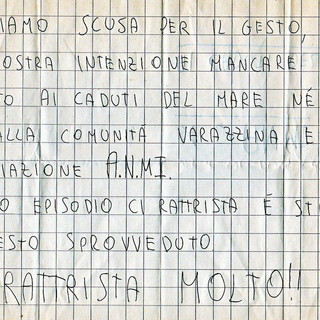 IAMO SCUSA PER IL GESTO,
OSTRA INTENZIONE MANCARE
TO AI CADUTI DEL MARE NÉ
ALLA COMUNITÁ VARAZZINA E
IAZIONE A.N.M.I.
O EPISODIO CI RATTRISTA É ST
ESTO SPROVVEDUTO
RATTRISTA MOLTO!!